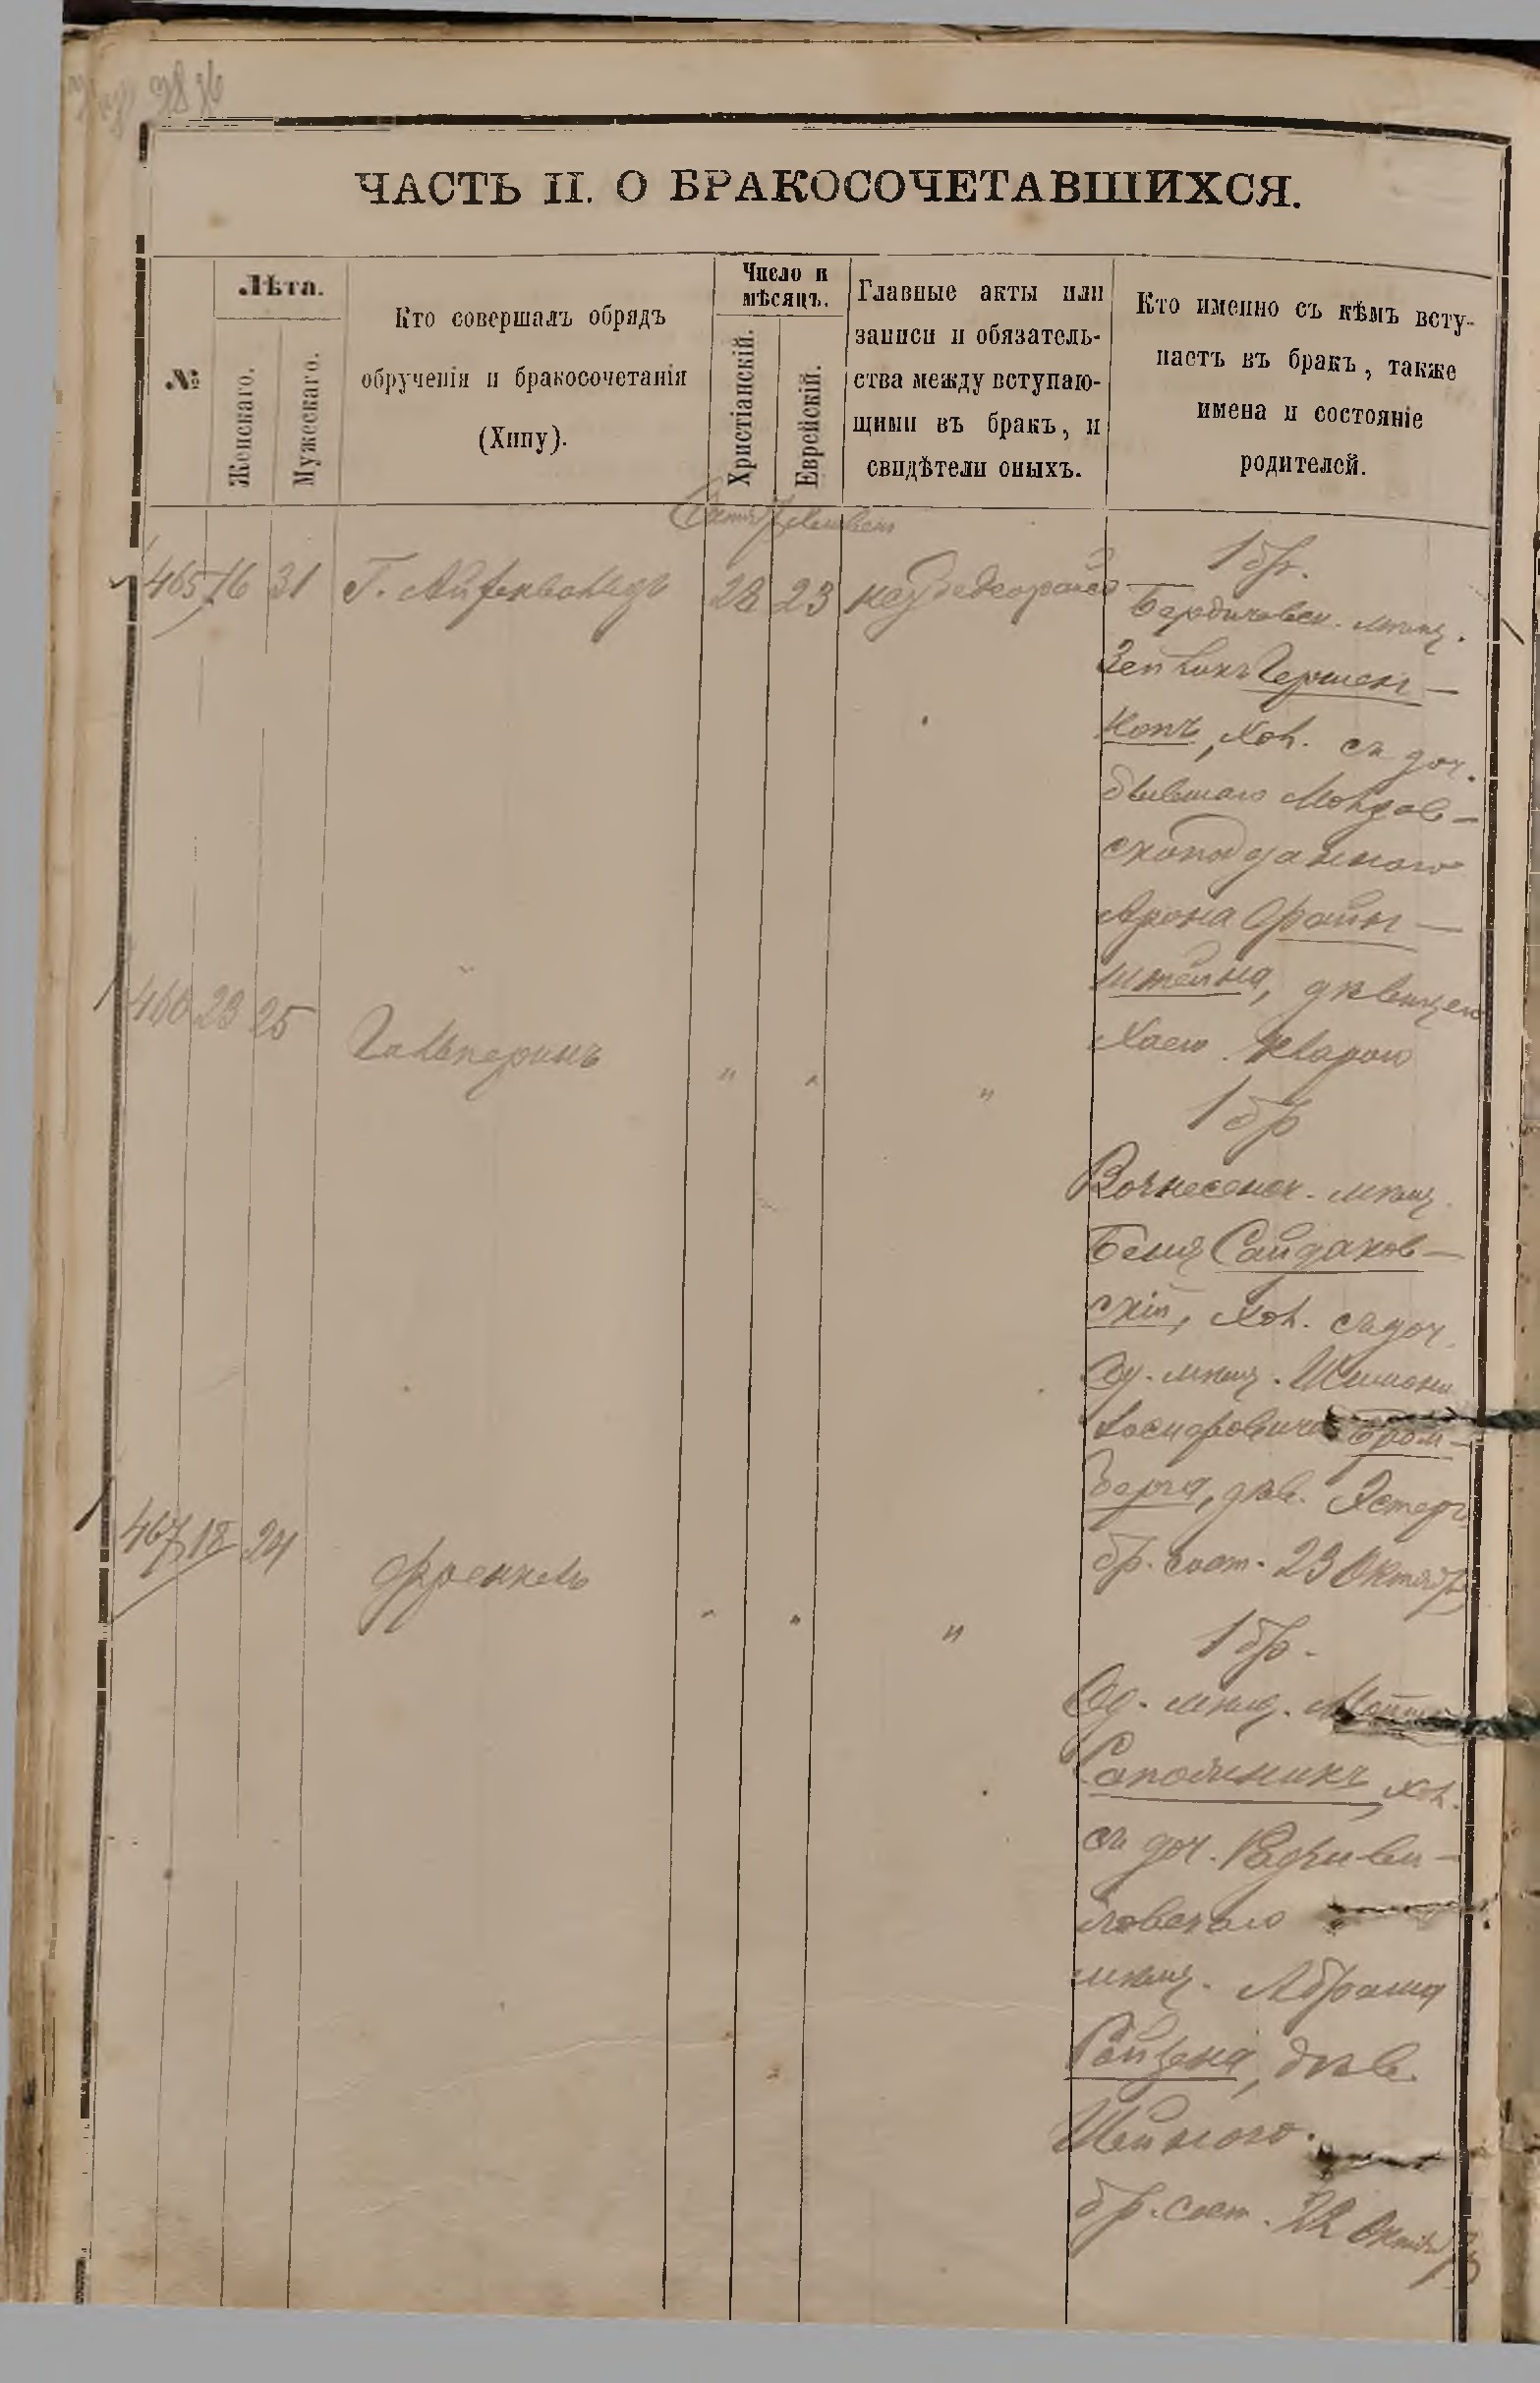 ЧАСТЬ II. О БРАКОСОЧЕТАВШИХСЯ.
№
Лѣта.
Женскаго.
Мужескаго.
Кто совершалъ обрядъ
обрученія и бракосочетанія
(Хипу).
Число и
мѣсяцъ.
Христіанскій.
Еврейскій.
Главные акты или
записи и обязатель-
ства между вступаю-
щими въ бракъ, и
свидѣтели оныхъ.
Кто именно съ кѣмъ всту-
паетъ въ бракъ, также
имена и состояніе
родителей.
465 16 31 Г. 28 23
1 бр.
Бердичевск. мѣщ.
Гершен-
хол. съ доч.
бывшаго Молдав-
скоподданнаго
Арона Файн-
штейна, дѣвицею
Хаею
466 23 25 Гальперинъ " " "
1 бр
Вознесенск. мѣщ.
Сайдаков-
скій, хол. съ доч.
Од. мѣщ. Шимона
Іосифовича Бром-
берга, дѣв. Эстеръ
бр. сост. 23 Октября
467 18 24 Френкель " " "
1 бр.
Од. мѣщ.
Сапожникъ, хол.
съ доч. Радзиви-
ловскаго
мѣщ. Абрама
Ройзена, дѣв.
Шейною.
бр. сост. 22 Октябр